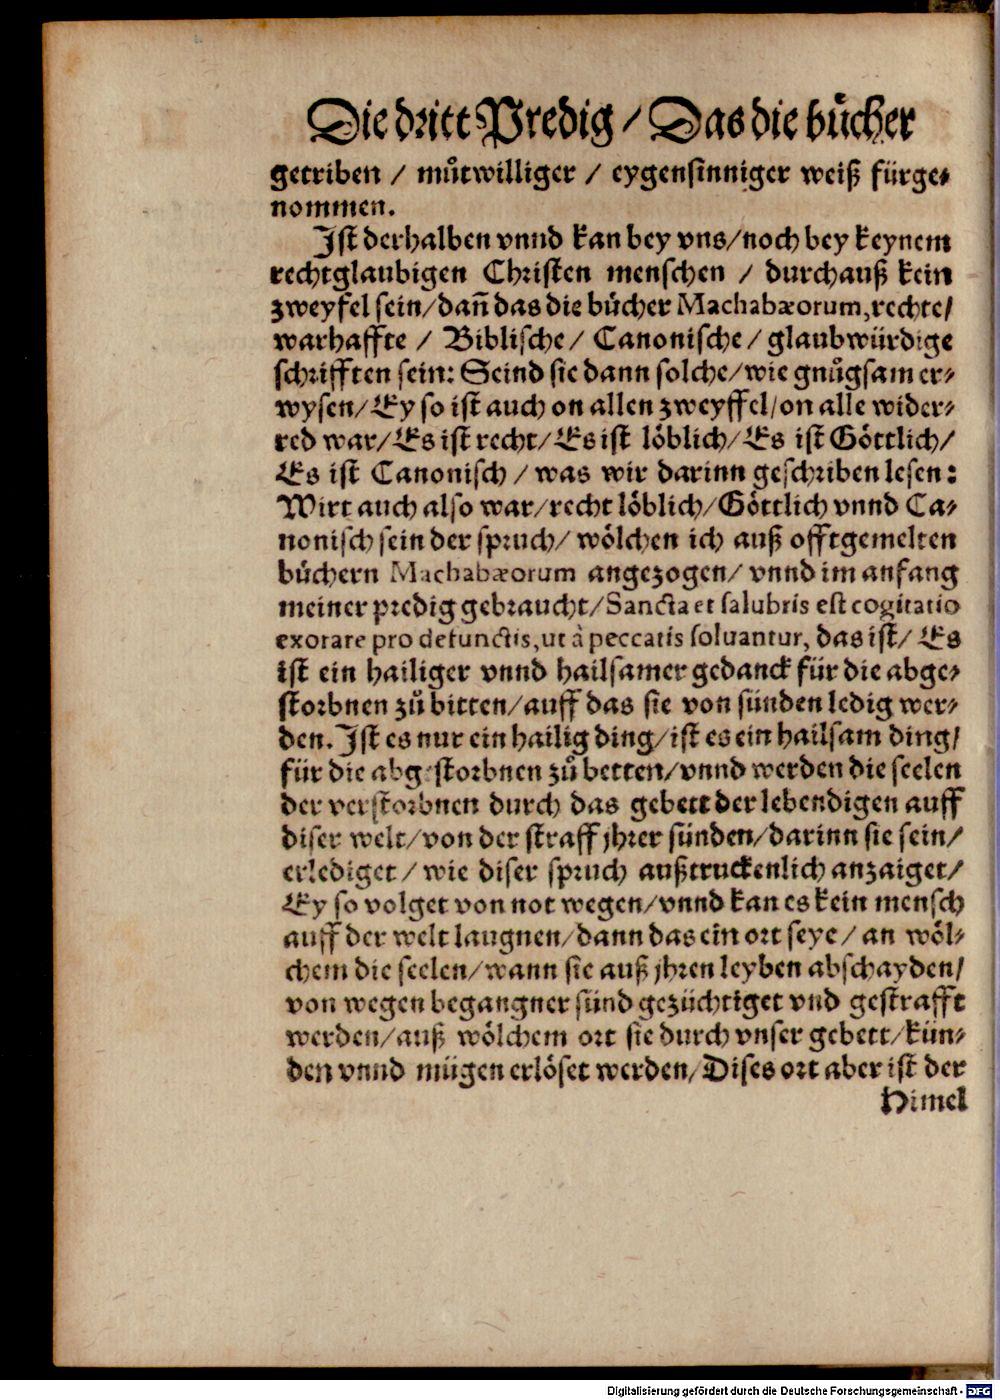 Die dritt Predig / Das die buͤcher
getriben / muͦtwilliger / eygensinniger weiß fürge⸗
nommen.
Ist derhalben vnnd kan bey vns/noch bey keynem
rechtglaubigen Christen menschen / durchauß kein
zweyfel sein/dañ das die buͤcher Machabæorum,rechte/
warhaffte / Biblische/ Canonische / glaubwürdige
schrifften sein: Seind sie dann solche/wie gnuͦgsam er⸗
wysen/Ey so ist auch on allen zweyffel/on alle wider⸗
red war/Es ist recht/Es ist loͤblich/Es ist Goͤttlich/
Es ist Canonisch / was wir darinn geschriben lesen:
Wirt auch also war/recht loͤblich/Goͤttlich vnnd Ca⸗
nonisch sein der spruch/ woͤlchen ich auß offtgemelten
buͤchern Machabæorum angezogen/ vnnd im anfang
meiner predig gebraucht/Sancta et salubris est cogitatio
exorare pro defunctis,ut à peccatis soluantur, das ist/ Es
ist ein hailiger vnnd hailsamer gedanck für die abge⸗
storbnen zuͦ bitten/auff das sie von sünden ledig wer⸗
den. Ist es nur ein hailig ding/ist es ein hailsam ding/
für die abgestorbnen zuͦ betten/vnnd werden die seelen
der verstorbnen durch das gebett der lebendigen auff
diser welt/von der straff jhrer sünden/darinn sie sein/
erlediget / wie diser spruch außtruckenlich anzaiget/
Ey so volget von not wegen/vnnd kan es kein mensch
auff der welt laugnen/dann das ein ort seye / an woͤl⸗
chem die seelen/wann sie auß jhren leyben abschayden/
von wegen begangner sünd gezüchtiget vnd gestrafft
werden/auß woͤlchem ort sie durch vnser gebett/kün⸗
den vnnd mügen erloͤset werden/Dises ort aber ist der
Himel
Digitalisierung gefördert durch die Deutsche Forschungsgemeinschaft - DFG